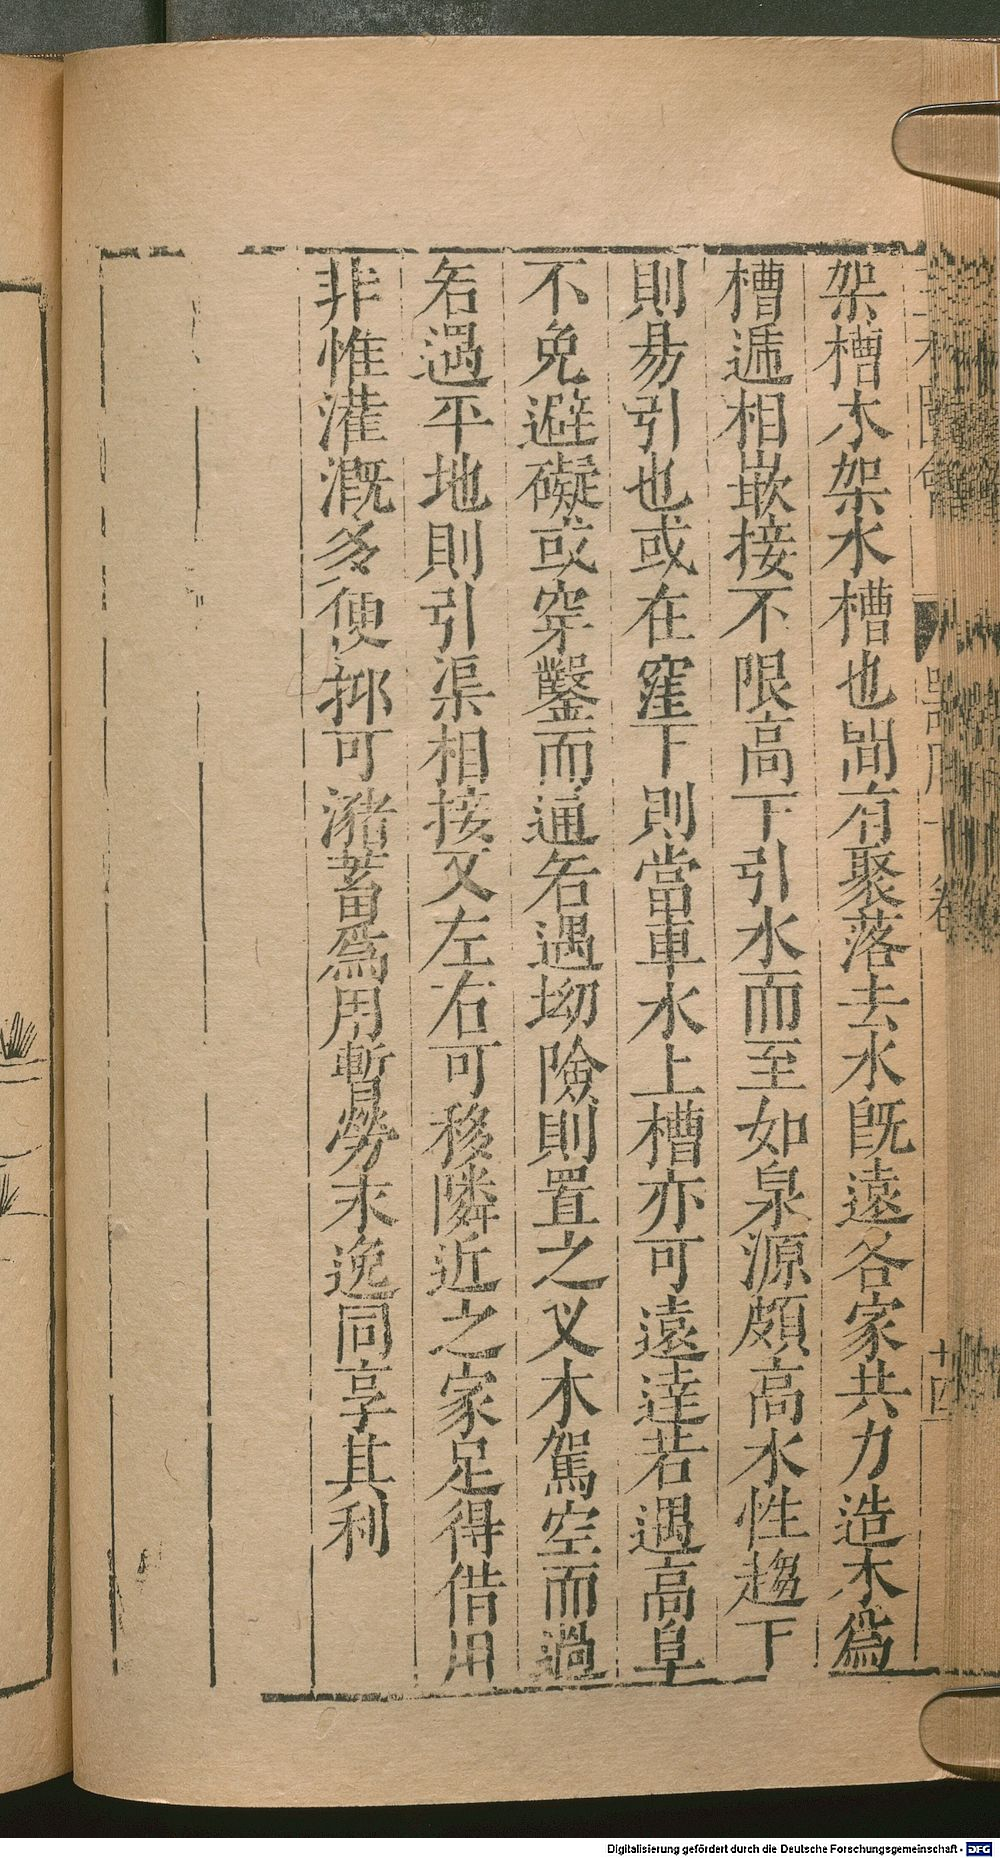 架槽木架水槽也間有聚落去水旣遠各家共力造木爲
槽遞相嵌接不限高下引水而至如泉源頗高水性趨下
則易引也或在窪下則當車水上槽亦可遠達若遇高阜
不免避礙或穿鑿而通若遇坳險則置之叉木駕空而過
若遇平地則引渠相接又左右可移隣近之家足得借用
非惟灌漑多便抑可瀦蓄爲用暫勞末逸同享其利
器用十卷
十四
Digitalisierung gefördert durch die Deutsche Forschungsgemeinschaft - DFG